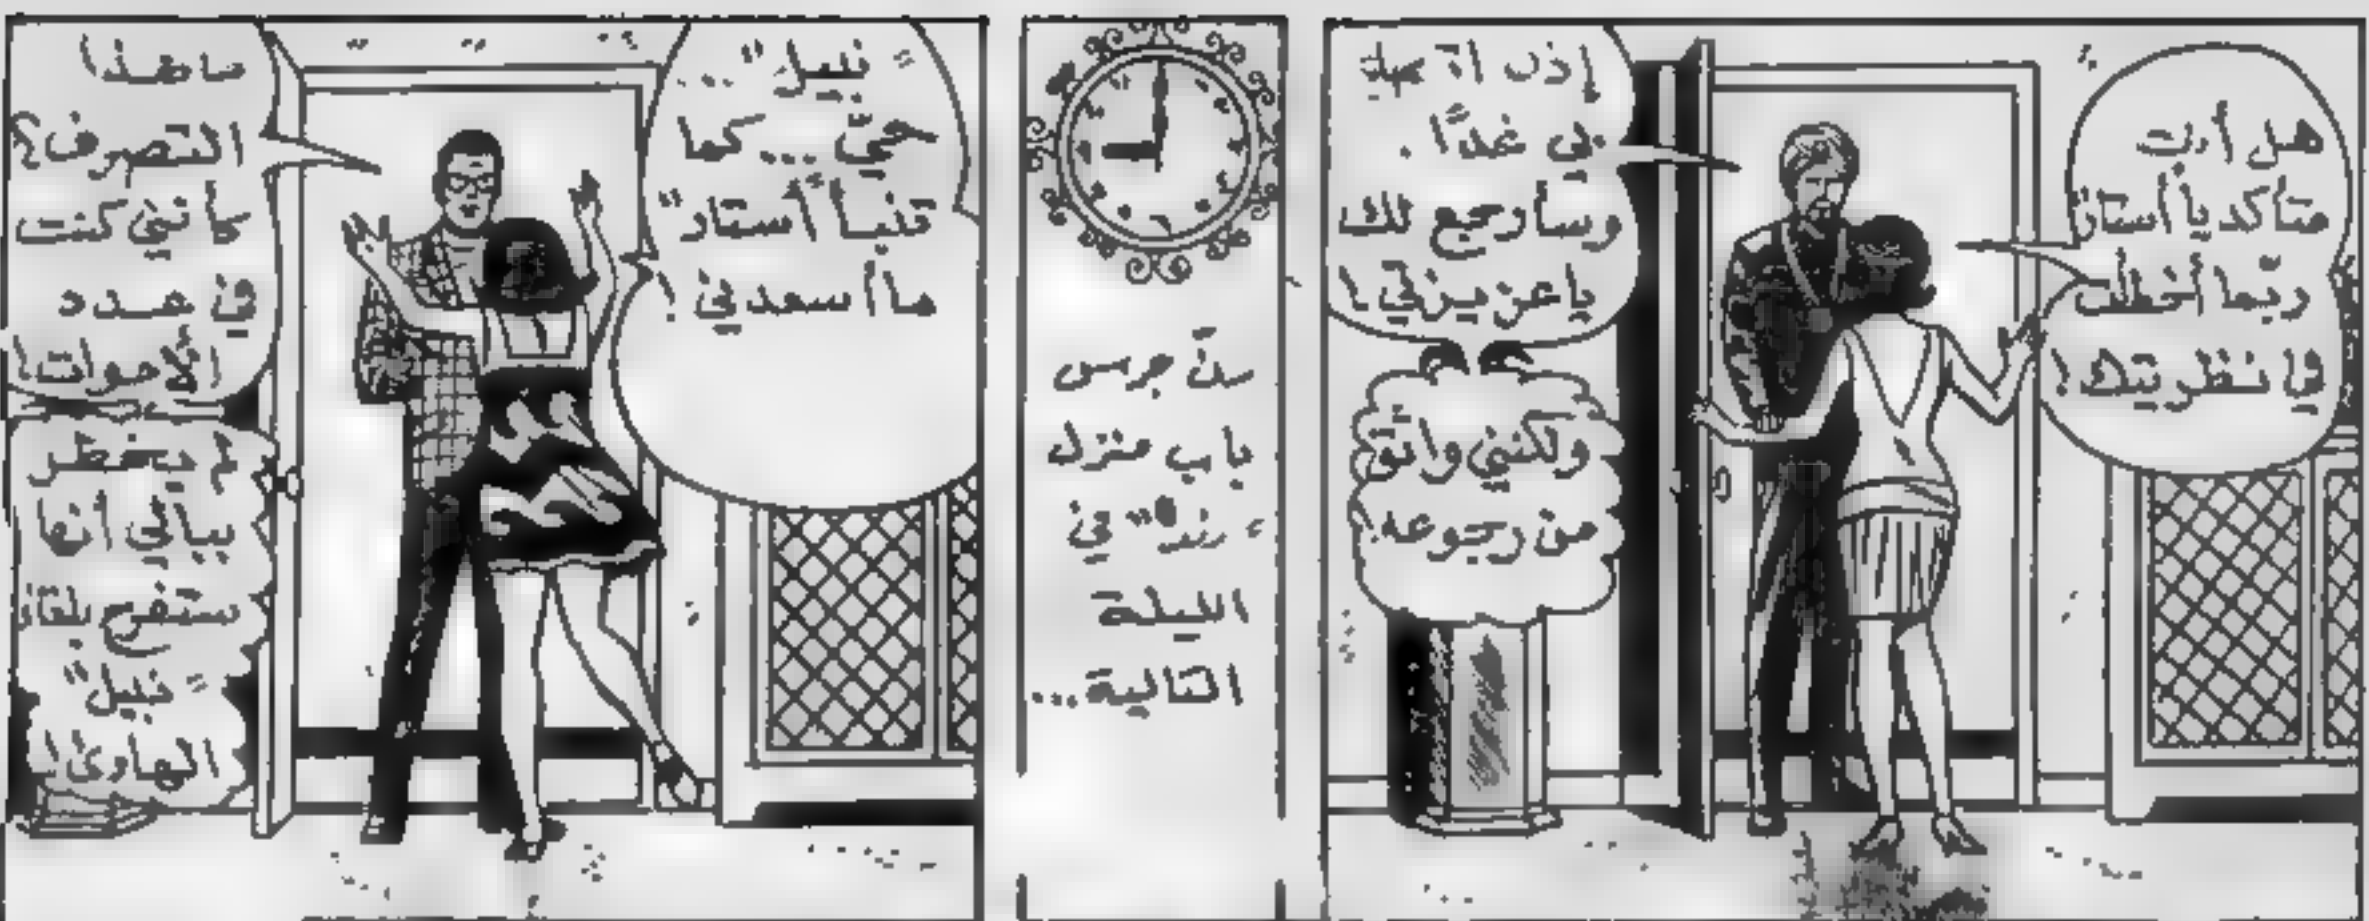 هل أنت
متأكد يا أستاذ
ربّما أخطأت
في نظريتك!
إذن
بي غدًا.
وسأرجع لك
يا عزيزتي!
ولكنني واثق
من رجوعه!
رنّ جرس
باب منزل
"رندا" في
الليلة
التالية...
"نبيل"...
حيّ... كما
تنبأ "أستاذ"
ما أسعدني!
ما هذا
التصرف؟
كأنني كنت
في عداد
الأموات!
لم يخطر
ببالي أنها
ستفرح بلقاء
"نبيل"
الهادئ!